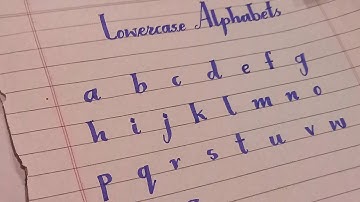 Lowercase Alphabets
a b c d e f g
h i j k l m n o
p q r s t u v w